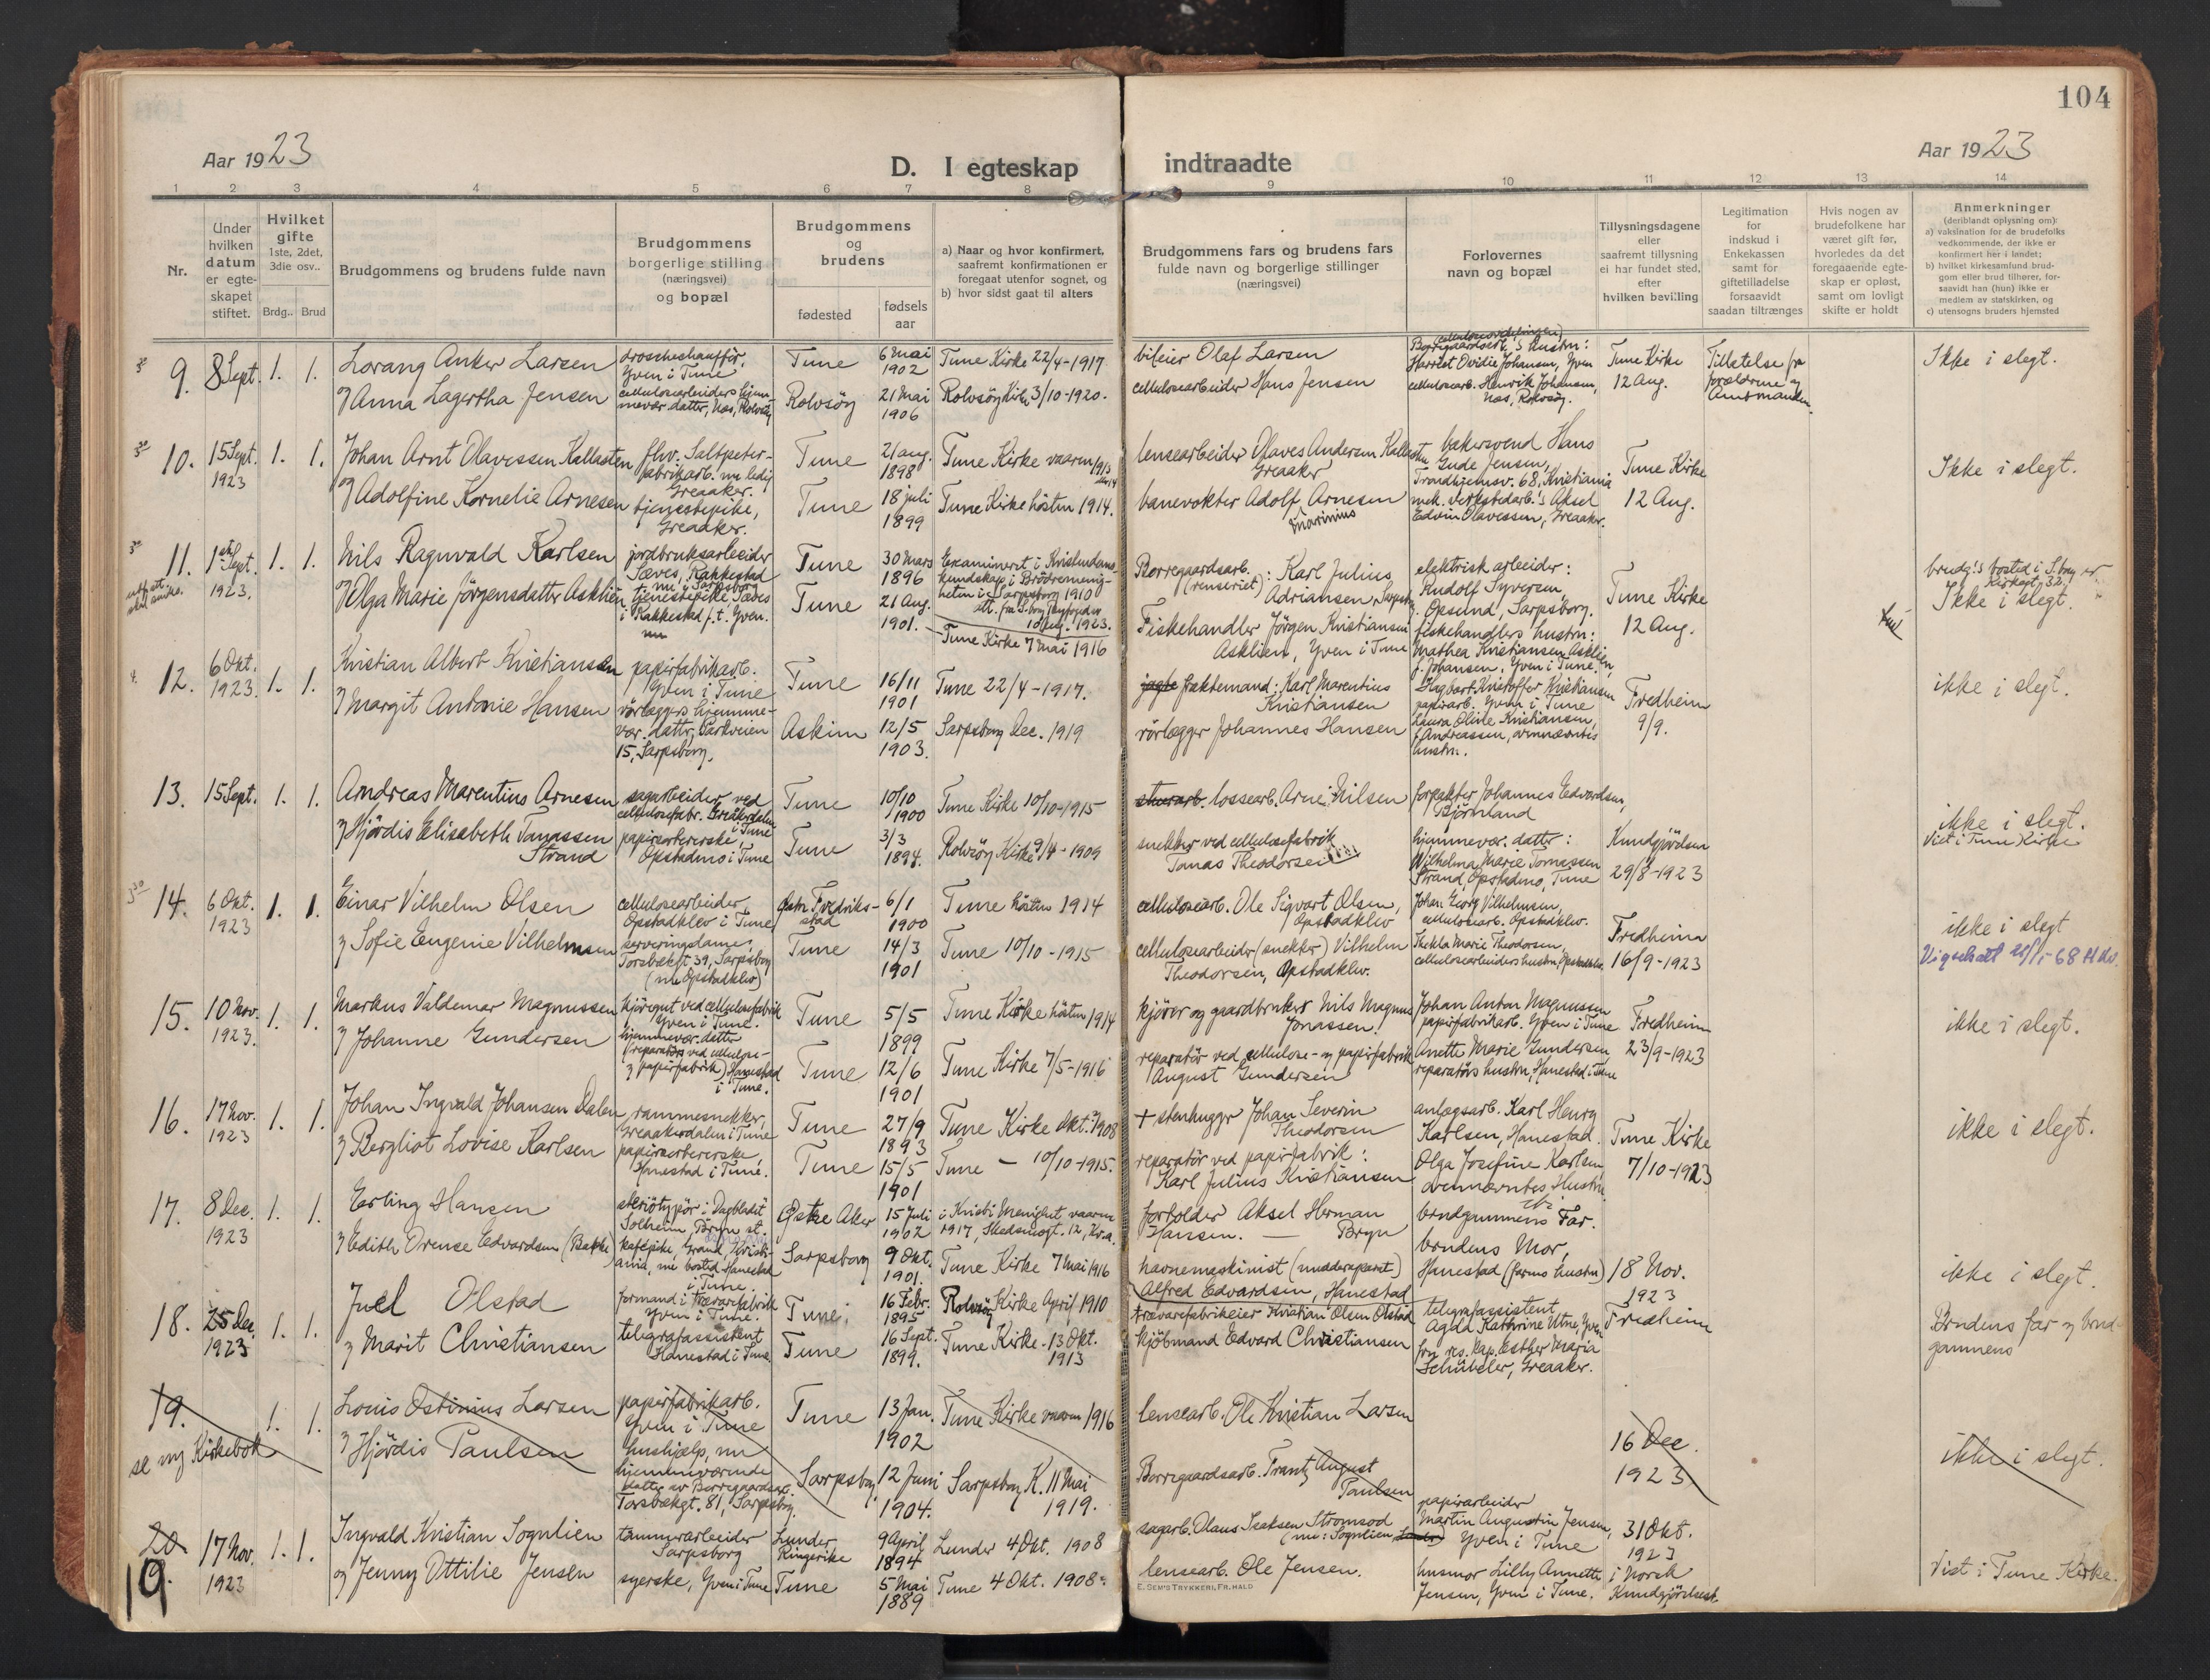 104
Aar 1923
D. I egteskap
indtraadte
Aar 1923
1 2 3 4 5 6 7 8 9 10 11 12 13 14
Nr.
Under
hvilken
datum
er egte-
skapet
stiftet.
Hvilket
gifte
1ste, 2det,
3die osv..
Brdg.. Brud
Brudgommens og brudens fulde navn
Brudgommens
borgerlige stilling
(næringsvei)
og bopæl
Brudgommens
og
brudens
fødested
fødsels
aar
a) Naar og hvor konfirmert,
saafremt konfirmationen er
foregaat utenfor sognet, og
b) hvor sidst gaat til alters
Brudgommens fars og brudens fars
fulde navn og borgerlige stillinger
(næringsvei)
Forlovernes
navn og bopæl
Tillysningsdagene
eller
saafremt tillysning
ei har fundet sted,
efter
hvilken bevilling
Legitimation
for
indskud i
Enkekassen
samt for
giftetilladelse
forsaavidt
saadan tiltrænges
Hvis nogen av
brudefolkene har
været gift før,
hvorledes da det
foregaaende egte-
skap er opløst,
samt om lovligt
skifte er holdt
Anmerkninger
(deriblandt oplysning om):
a) vaksination for de brudefolks
vedkommende, der ikke er
konfirmert her i landet;
b) hvilket kirkesamfund brud-
gom eller brud tilhører, for-
saavidt han (hun) ikke er
medlem av statskirken, og
c) utensogns bruders hjemsted
9. 8 Sept. 1. 1.
Lorang Anker Larsen
og Anna Lagertha Jensen
droschechauffør,
Yven i Tune
cellulosearbeiders hjem-
mevær. datter, Næs, Rolvsöy
Tune 6 mai 1902 Tune Kirke 22/4-1917
Rolvsöy 21 Mai 1906 Rolvsöy Kirke 3/10-1920.
bileier Olaf Larsen
cellulosearbeider Hans Jensen
Harriet Ovidie Johansen, Yven
cellulosearb. Henrik Johansen,
Næs, Rolvsöy.
Tune Kirke
12 Aug.
Tillatelse fra
forældrene og
Amtmanden.
Ikke i slegt.
10. 15 Sept. 1923 1. 1.
Johan Arnt Olavessen Kallasten
og Adolfine Kornelie Arnesen
fhv. Saltpeter-
fabrikarb. nu ledig
Greaaker.
tjenestepike,
Greaaker.
Tune 21 aug. 1898 Tune Kirke vaaren 1913
Tune 18 juli 1899 Tune Kirke hösten 1914.
lensearbeider Olaves Andersen Kallasten
Greaaker
banevokter Adolf Marinius Arnesen
bakersvend Hans
Gude Jensen,
Trondhjemsv. 68, Kristiania
mek. Verkstedarb.: Aksel
Edvin Olavessen, Greaaker.
Tune Kirke
12 Aug.
Ikke i slegt.
11. 1ste Sept. 1923. 1. 1.
Nils Ragnvald Karlsen
og Olga Marie Jörgensdatter Asklien
jordbruksarbeider
Sæves, Rakkestad
nu i Sarpsborg
tjenestepike Sæves
i Rakkestad f. t. Yven.
Tune 30 Mars 1896
Tune 21 Aug. 1901.
Examineret i Kristendoms-
kundskap i Brödremenig-
heten i Sarpsborg 1910
Tune Kirke 7 Mai 1916
Borregaardsarb.
(renseriet): Karl Julius
Adriansen, Sarpsborg.
Fiskehandler Jörgen Kristiansen
Asklien, Yven i Tune
elektrisk arbeider:
Rudolf Syversen,
Opsund, Sarpsborg.
fiskehandlers hustru:
Mathea Kristiansen Asklien,
f. Johansen, Yven i Tune
Tune Kirke
12 Aug.
brudg.'s bosted i S.borg er
Kirkegt. 32.
Ikke i slegt.
12. 6 Okt. 1923. 1. 1.
Kristian Albert Kristiansen
og Margit Antonie Hansen
papirfabrikarb.
Yven i Tune
rörlæggers hjemme-
vær. datter, Parkveien
15, Sarpsborg.
Tune 16/11 1901 Tune 22/4-1917.
Askim 12/5 1903. Sarpsborg Dec. 1919
fraktemand: Karl Marentius
Kristiansen
rörlægger Johannes Hansen
Dagbart Kristoffer Kristiansen
papirarb. Yven i Tune
Laura Oline Kristiansen,
f. Andreassen, ovennævntes
hustru.
Fredheim
9/9.
ikke i slegt.
13. 15 Sept. 1. 1.
Andreas Marentius Arnesen
og Hjördis Elisabeth Tomassen
Strand
sagarbeider ved
cellulosefabr. Greakerdalen
i Tune
papirsortererske,
Opstadmo i Tune
Tune 10/10 1900 Tune Kirke 10/10-1915
Tune 3/3 1894. Rolvsöy Kirke 9/4-1909
lossearb. Arne Nilsen
snekker ved cellulosefabrik
Tomas Theodorsen
forpakter Johannes Edvardsen,
Björnland
hjemmevær. datter:
Wilhelma Marie Tomassen
Strand, Opstadmo, Tune
Kundgjördsen
29/8-1923
ikke i slegt.
Viet i Tune Kirke
14. 6 Okt. 1923 1. 1.
Einar Vilhelm Olsen
og Sofie Eugenie Vilhelmsen
cellulosearbeider,
Opstadklev i Tune
serveringsdame,
Torsbækgt. 39, Sarpsborg
(nu Opstadklev)
Fredriks-
stad 6/1 1900 Tune hösten 1914
Tune 14/3 1901 Tune 10/10-1915
cellulosearb. Ole Sigvart Olsen,
Opstadklev
cellulosearbeider (snekker) Vilhelm
Theodorsen, Opstadklev.
Johan Georg Vilhelmsen,
cellulosearb. Opstadklev.
Thekla Marie Theodorsen,
cellulosearbeiders hustru, Opstadklev.
Fredheim
16/9-1923
ikke i slegt
15. 10 Nov. 1923. 1. 1.
Markus Valdemar Magnussen
og Johanne Gundersen
kjöregut ved cellulosefabrik
Yven i Tune.
hjemmevær. datter
(reparatörs ved cellulose-
og papirfabrik) Hanestad
i Tune.
Tune 5/5 1899 Tune Kirke hösten 1914
Tune 12/6 1901 Tune Kirke 7/5-1916
kjörer og gaardbruker Nils Magnus
Jonassen.
reparatör ved cellulose- og papirfabrik
August Gundersen
Johan Anton Magnussen
papirfabrikarb. Yven i Tune
Anette Marie Gundersen
reparatörs hustru, Hanestad i Tune
Fredheim
23/9-1923
ikke i slegt.
16. 17 Nov. 1923 1. 1.
Johan Ingvald Johansen Dalen
og Bergliot Lovise Karlsen
rammesnekker,
Greaakerdalen i Tune
papirsortererske,
Hanestad i Tune.
Tune 27/9 1893 Tune Kirke Okt. 1908
Tune 15/5 1901 Tune — 10/10-1915.
+ stenhugger Johan Severin
Theodorsen
reparatör ved papirfabrik:
Karl Julius Kristiansen
anlægsarb. Karl Henry
Karlsen, Hanestad.
Olga Josefine Karlsen,
ovennævntes Hustru
Tune Kirke
7/10-1923
ikke i slegt.
17. 8 Dec. 1923 1. 1.
Erling Hansen
og Edith Orense Edvardsen (Bakke)
steriötypör i Dagbladet
Solheim, Bryn st.
kafépike, Grand, Kristi-
ania, nu bosted Hanestad
i Tune.
Östre Aker 15 Juli 1902
Sarpsborg 9 Okt. 1901.
i Kristi Menighet vaaren
1917,
Tune Kirke 7 Mai 1916
forfolder Aksel Herman
Hansen. — Bryn
havnemaskinist (mudderaparat)
Alfred Edvardsen, Hanestad
brudgommens Far.
brudens Mor,
Hanestad (farens hustru)
18 Nov.
1923
ikke i slegt.
18. 25 Dec. 1923 1. 1.
Juel Olstad
og Marit Christiansen
formand i trævarefabrik
Yven i Tune.
telegrafassistent
Hanestad i Tune.
Tune 16 Febr. 1895 Rolvsöy Kirke April 1910
Tune 16 Sept. 1899. Tune Kirke 13 Okt.
1913
trævarefabrikeier Kristian Olsen Olstad
kjöbmand Edvard Christiansen
telegrafassistent
Agda Kathrine Utne, Yven
fru res. kap. Esther Maria
Schübeler, Greaaker.
Fredheim
Brudens far og brud-
gommens
19. 1. 1.
se ny Kirkebok
Louis Ostinius Larsen
og Hjördis Paulsen
papirfabrikarb.
Yven i Tune
hushjælp, nu
hjemmeværende
datter av Borregaardsarb.
Torsbækgt. 81, Sarpsborg.
Tune 13 Jan. 1902 Tune Kirke vaaren 1916
Sarpsborg 12 Juni 1904. Sarpsborg K. 11 Mai
1919.
lensearb. Ole Kristian Larsen
Borregaardsarb. Frantz August
Paulsen
16 Dec.
1923
ikke i slegt.
20.
19. 17 Nov. 1923 1. 1.
Ingvald Kristian Sognlien
og Jenny Ottilie Jensen
tömmerarbeider
Sarpsborg
syerske, Yven i Tune
Lunder
Ringerike 9 April 1894 Lunder 4 Okt. 1908
Tune 5 Mai 1889 Tune 4 Okt. 1908
sagarb. Olaus Isaksen Stromsod
(nu: Sognlien)
lensearb. Ole Jensen.
papirarbeider
Martin Augustin Jensen,
Yven i Tune
husmor Lilly Annette
Jensen, Yven i Tune.
31 Okt.
1923
i Norsk
Kundgjörelsest.
Viet i Tune Kirke.
E. SEM'S TRYKKERI, FR.HALD